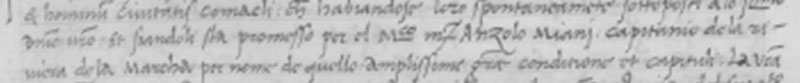 & hominū Civentis Comachi: Et habiandose loro spontaneamēte sottoposti a lo
dñio vrõ. Et siandoli sta promesso per el Mco mſ Anzolo Miani. Capitanio de la ri-
viera de la Marcha per nome de quello amplissime grē conditione et capituli: La vrã